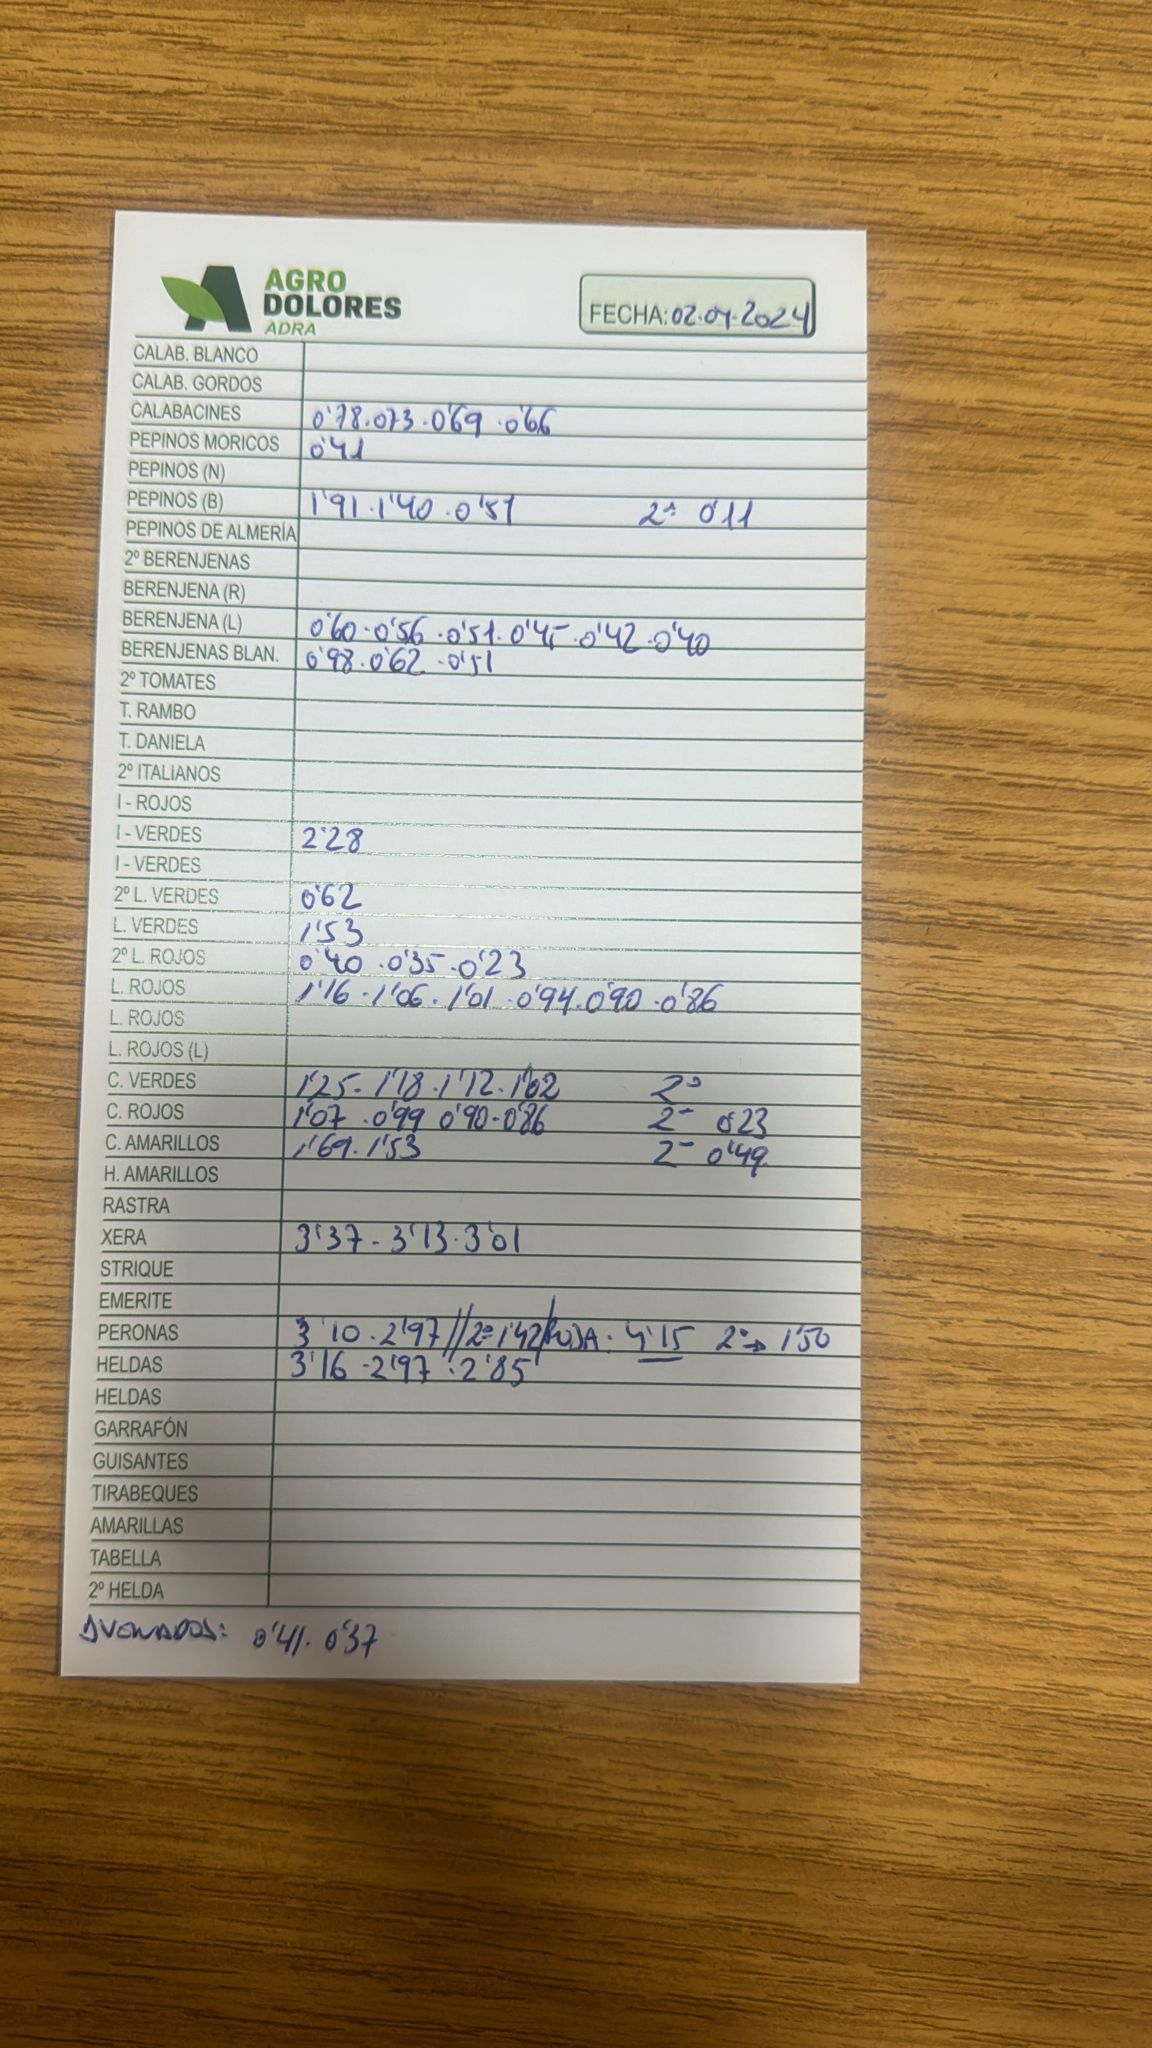 AGRO
DOLORES
ADRA
FECHA: 02.04.2024
CALAB. BLANCO
CALAB. GORDOS
CALABACINES 0'78.073.0'69.0'66
PEPINOS MORICOS 0'41
PEPINOS (N)
PEPINOS (B) 1'91.1'40.0'51 2ª 0'11
PEPINOS DE ALMERÍA
2º BERENJENAS
BERENJENA (R)
BERENJENA (L) 0'60.0'56.0'51.0'45.0'42.0'40
BERENJENAS BLAN. 0'98.0'62.0'51
2º TOMATES
T. RAMBO
T. DANIELA
2º ITALIANOS
I - ROJOS
I - VERDES 2'28
I - VERDES
2º L. VERDES 0'62
L. VERDES 1'53
2º L. ROJOS 0'40.0'35.0'23
L. ROJOS 1'16.1'06.1'01.0'94.0'90.0'86
L. ROJOS
L. ROJOS (L)
C. VERDES 1'25-1'18.1'12.1'02 2º
C. ROJOS 1'07.0'99 0'90-0'86 2- 0'23
C. AMARILLOS 1'69.1'53 2- 0'49
H. AMARILLOS
RASTRA
XERA 3'37-3'13.3'01
STRIQUE
EMERITE
PERONAS 3'10.2'97//2ª 1'42/ROJA: 4'15 2ª→ 1'50
HELDAS 3'16-2'97.2'85
HELDAS
GARRAFÓN
GUISANTES
TIRABEQUES
AMARILLAS
TABELLA
2º HELDA
0'41.0'37